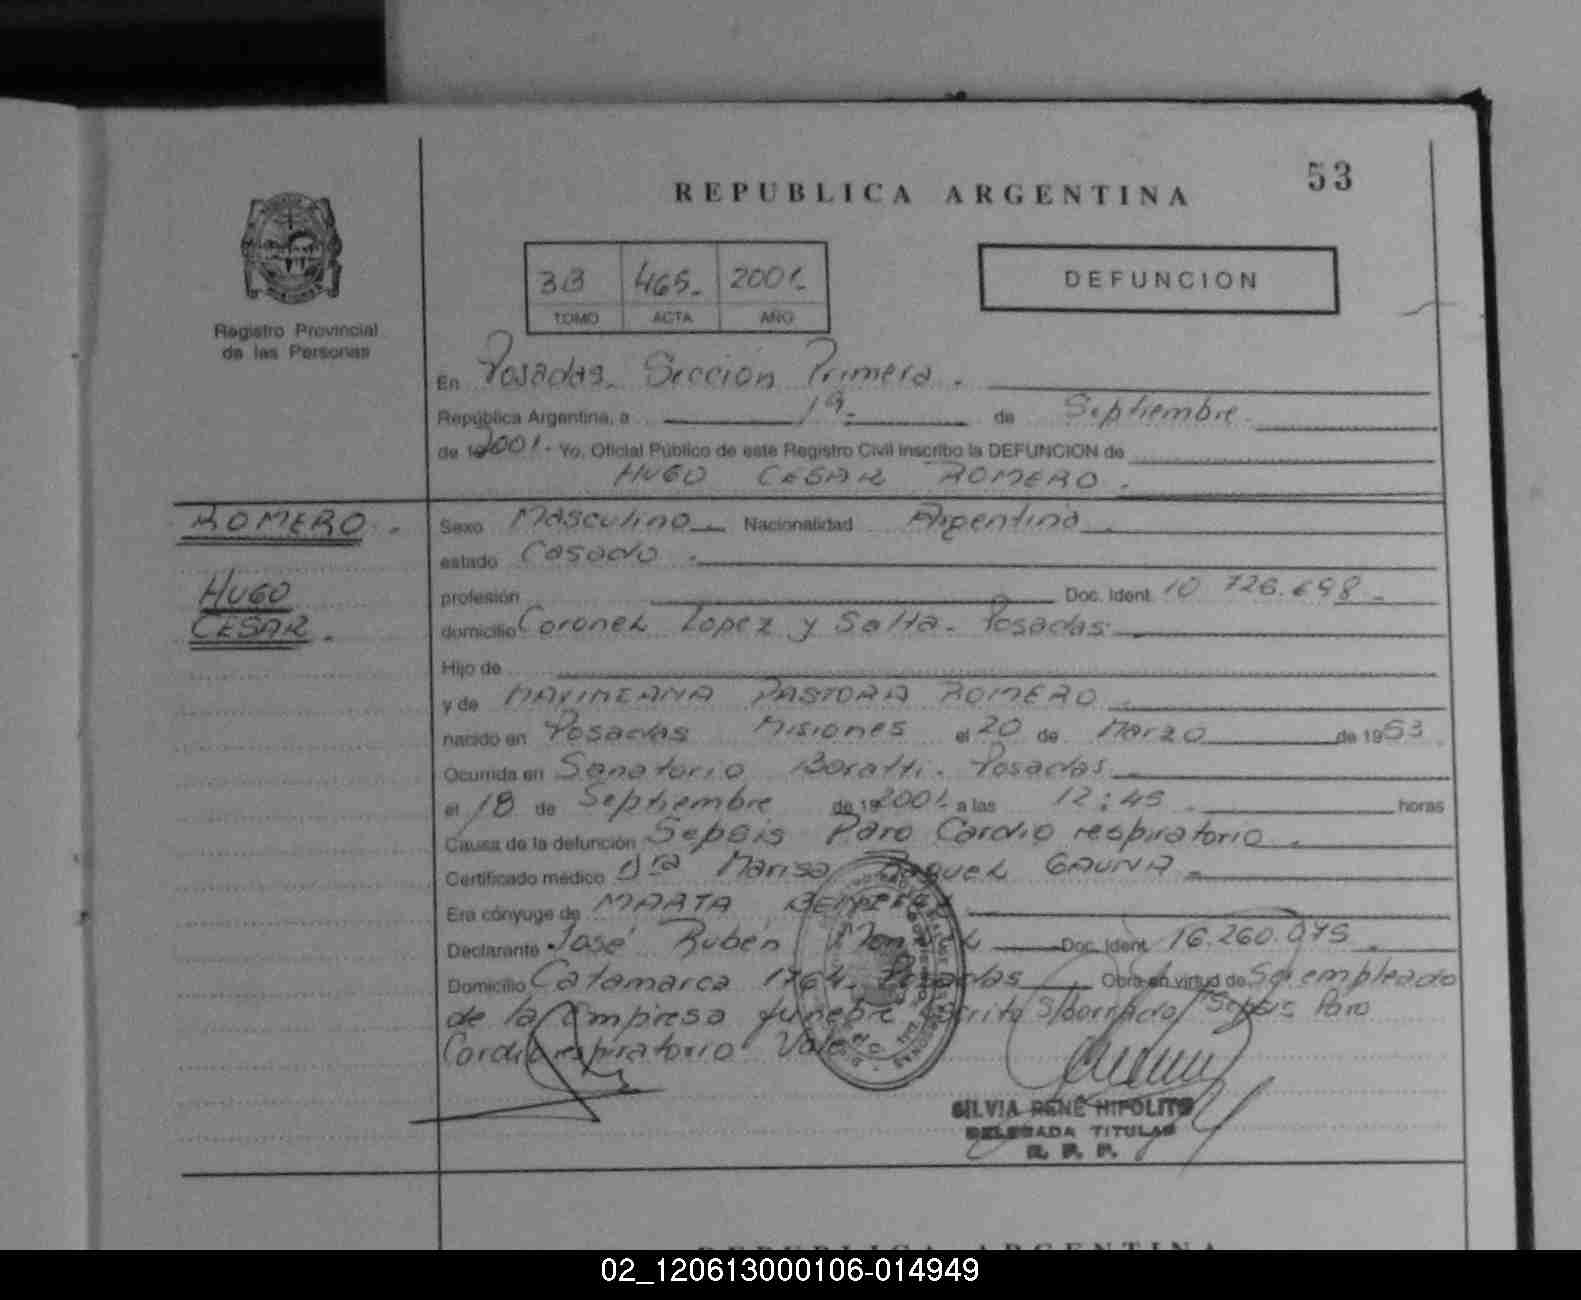 53
REPUBLICA ARGENTINA
33 465. 2001.
TOMO ACTA AÑO
DEFUNCION
Registro Provincial
de las Personas
En Posadas. Sección Primera.
República Argentina, a 19. de Septiembre.
de 2001. Yo, Oficial Público de este Registro Civil inscribo la DEFUNCION de
HUGO CESAR ROMERO.
ROMERO.
HUGO
CESAR.
Sexo Masculino Nacionalidad Argentina.
estado Casado.
profesión Doc. Ident. 10 726.698.
domicilio Coronel Lopez y Salta. Posadas.
Hijo de
y de MAXIMIANA PASTORA ROMERO.
nacido en Posadas Misiones el 20 de Marzo de 1953.
Ocurrida en Sanatorio Boratti. Posadas.
el 18 de Septiembre de 2001. a las 12:45. horas
Causa de la defunción Sepsis Paro Cardio respiratorio.
Certificado médico Dra Marisa Raquel GAUNA.
Era cónyuge de MARTA
Declarante José Rubén Doc. Ident. 16.260.075.
Domicilio Catamarca 1764. Posadas Obra en virtud de Ser empleado
de la Empresa funebre escrito S/borrado/ Sepsis Paro
Cardio respiratorio Vale
SILVIA RENE HIPOLITO
DELEGADA TITULAR
R. P. P.
REPUBLICA ARGENTINA
02_120613000106-014949